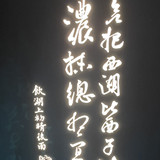 欲把西湖比西子
濃抹總相宜
飲湖上初晴後雨